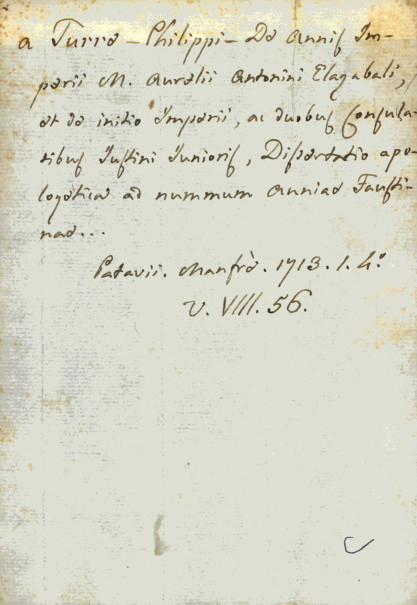 a Turre - Philippi - De Annis Im-
perii M. Aurelii Antonini Elagabali,
et de initio Imperii, ac duobus Consula-
tibus Justini Junioris, Dissertatio apo-
logetica ad nummum Anniae Fausti-
nae...
Patavii. Manfrè. 1713. 1. 4.º
V. VIII. 56.